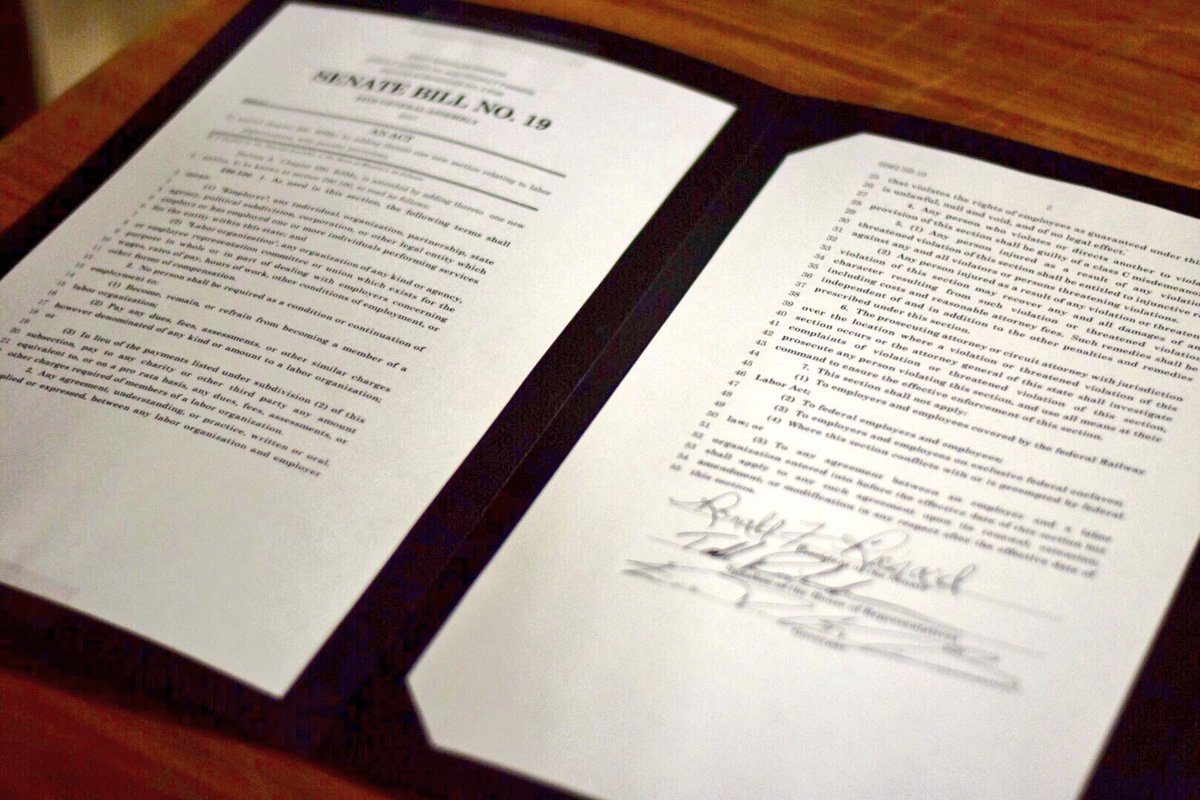 SENATE BILL NO. 19
GENERAL ASSEMBLY
AN ACT
relating to labor
Section A. Chapter 290, RSMo, is amended by adding thereto one new
section, to be known as section 290.590, to read as follows:
290.590. 1. As used in this section, the following terms shall
mean:
(1) "Employer", any individual, organization, partnership, state
agency, political subdivision, corporation, or other legal entity which
employs or has employed one or more individuals performing services
for the entity within this state; and
(2) "Labor organization", any organization of any kind or agency,
or employee representation committee or union which exists for the
purpose in whole or in part of dealing with employers concerning
wages, rates of pay, hours of work, other conditions of employment, or
other forms of compensation.
2. No person shall be required as a condition or continuation of
employment to:
(1) Become, remain, or refrain from becoming a member of a
labor organization;
(2) Pay any dues, fees, assessments, or other similar charges
however denominated of any kind or amount to a labor organization;
or
(3) In lieu of the payments listed under subdivision (2) of this
subsection, pay to any charity or other third party any amount
equivalent to, or on a pro rata basis, any dues, fees, assessments, or
other charges required of members of a labor organization.
3. Any agreement, understanding, or practice, written or oral,
implied or expressed, between any labor organization and employer
2
25 that violates the rights of employees as guaranteed under
26 is unlawful, null and void, and of no legal effect.
27 4. Any person who violates or directs another to
28 provision of this section shall be guilty of a class C
29 5. (1) Any person injured as a result of any
30 threatened violation of this section shall be entitled to injunctive
31 against any and all violators or persons threatening violations.
32 (2) Any person injured as a result of any violation or
33 violation of this section may recover any and all damages of
34 character resulting from such violation or threatened violation
35 including costs and reasonable attorney fees. Such remedies shall be
36 independent of and in addition to the other penalties and remedies
37 prescribed under this section.
38 6. The prosecuting attorney or circuit attorney with jurisdiction
39 over the location where a violation or threatened violation of this
40 section occurs or the attorney general of this state shall investigate
41 complaints of violation or threatened violation of this section,
42 prosecute any person violating this section, and use all means at their
43 command to ensure the effective enforcement of this section.
44 7. This section shall not apply:
45 (1) To employers and employees covered by the federal Railway
46 Labor Act;
47 (2) To federal employers and employees;
48 (3) To employers and employees on exclusive federal enclaves;
49 (4) Where this section conflicts with or is preempted by federal
50 law; or
51 (5) To any agreement between an employer and a labor
52 organization entered into before the effective date of this section but
53 shall apply to any such agreement upon its renewal, extension,
54 amendment, or modification in any respect after the effective date of
55 this section.
Ronald F. Richard
of the Senate
of the House of Representatives
Governor